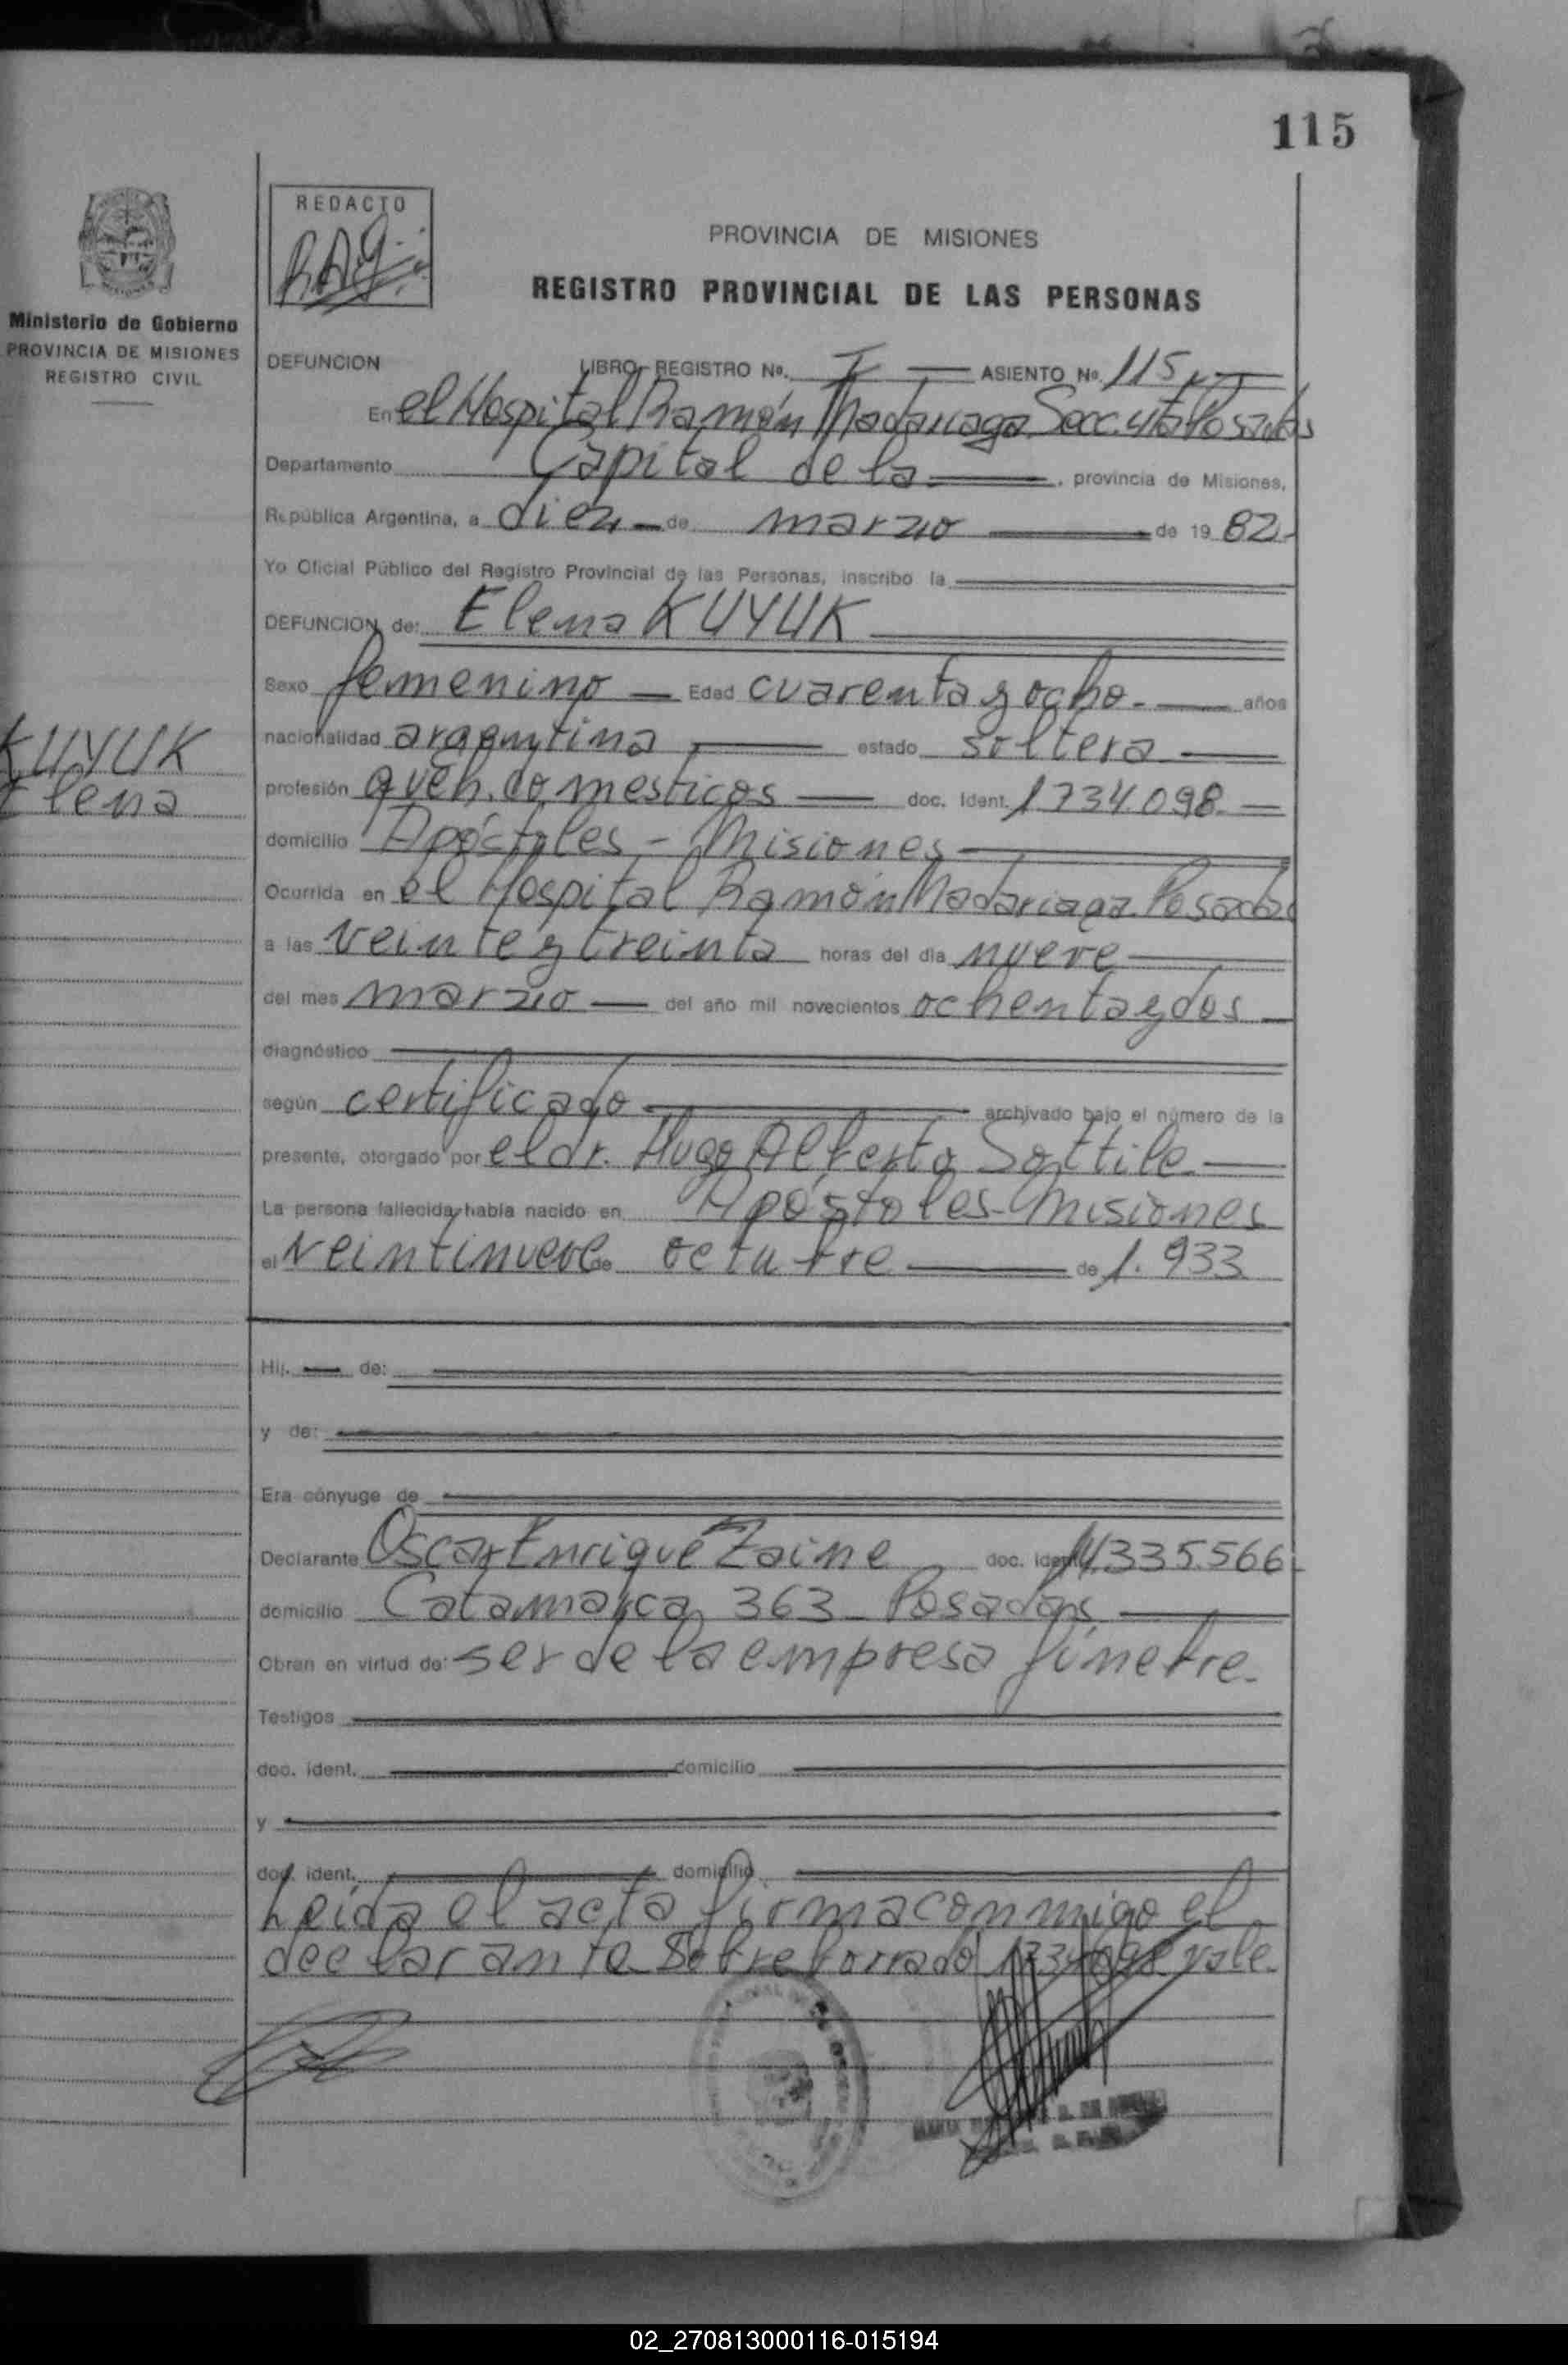 115
REDACTO
Ministerio de Gobierno
PROVINCIA DE MISIONES
REGISTRO CIVIL
PROVINCIA DE MISIONES
REGISTRO PROVINCIAL DE LAS PERSONAS
DEFUNCION LIBRO REGISTRO No. I ASIENTO No. 115
En el Hospital Ramón Madariaga Secc. 4ta Posadas
Departamento Capital de la , provincia de Misiones,
República Argentina, a diez de marzo de 1982
Yo Oficial Público del Registro Provincial de las Personas, inscribo la
DEFUNCION de: Elena KUYUK
Sexo femenino Edad cuarenta y ocho años
KUYUK
Elena
nacionalidad argentina estado soltera
profesión queh. domesticos doc. Ident. 1734.098
domicilio Apóstoles - Misiones
Ocurrida en el Hospital Ramón Madariaga Posadas
a las veinte y treinta horas del día nueve
del mes marzo del año mil novecientos ochenta y dos
diagnóstico
según certificado archivado bajo el número de la
presente, otorgado por el dr. Hugo Alberto Sottile
La persona fallecida había nacido en Apóstoles - Misiones
el veintinueve de octubre de 1.933
Hij. de:
y de:
Era cónyuge de
Declarante Oscar Enrique Zaine doc. Ident. 11.335.566
domicilio Catamarca 363 - Posadas
Obran en virtud de: ser de la empresa fúnebre.
Testigos
doc. ident. domicilio
y
doc. ident. domicilio
Leida el acta firma conmigo el
declarante Sobreborrado 1734098 vale.
02_270813000116-015194